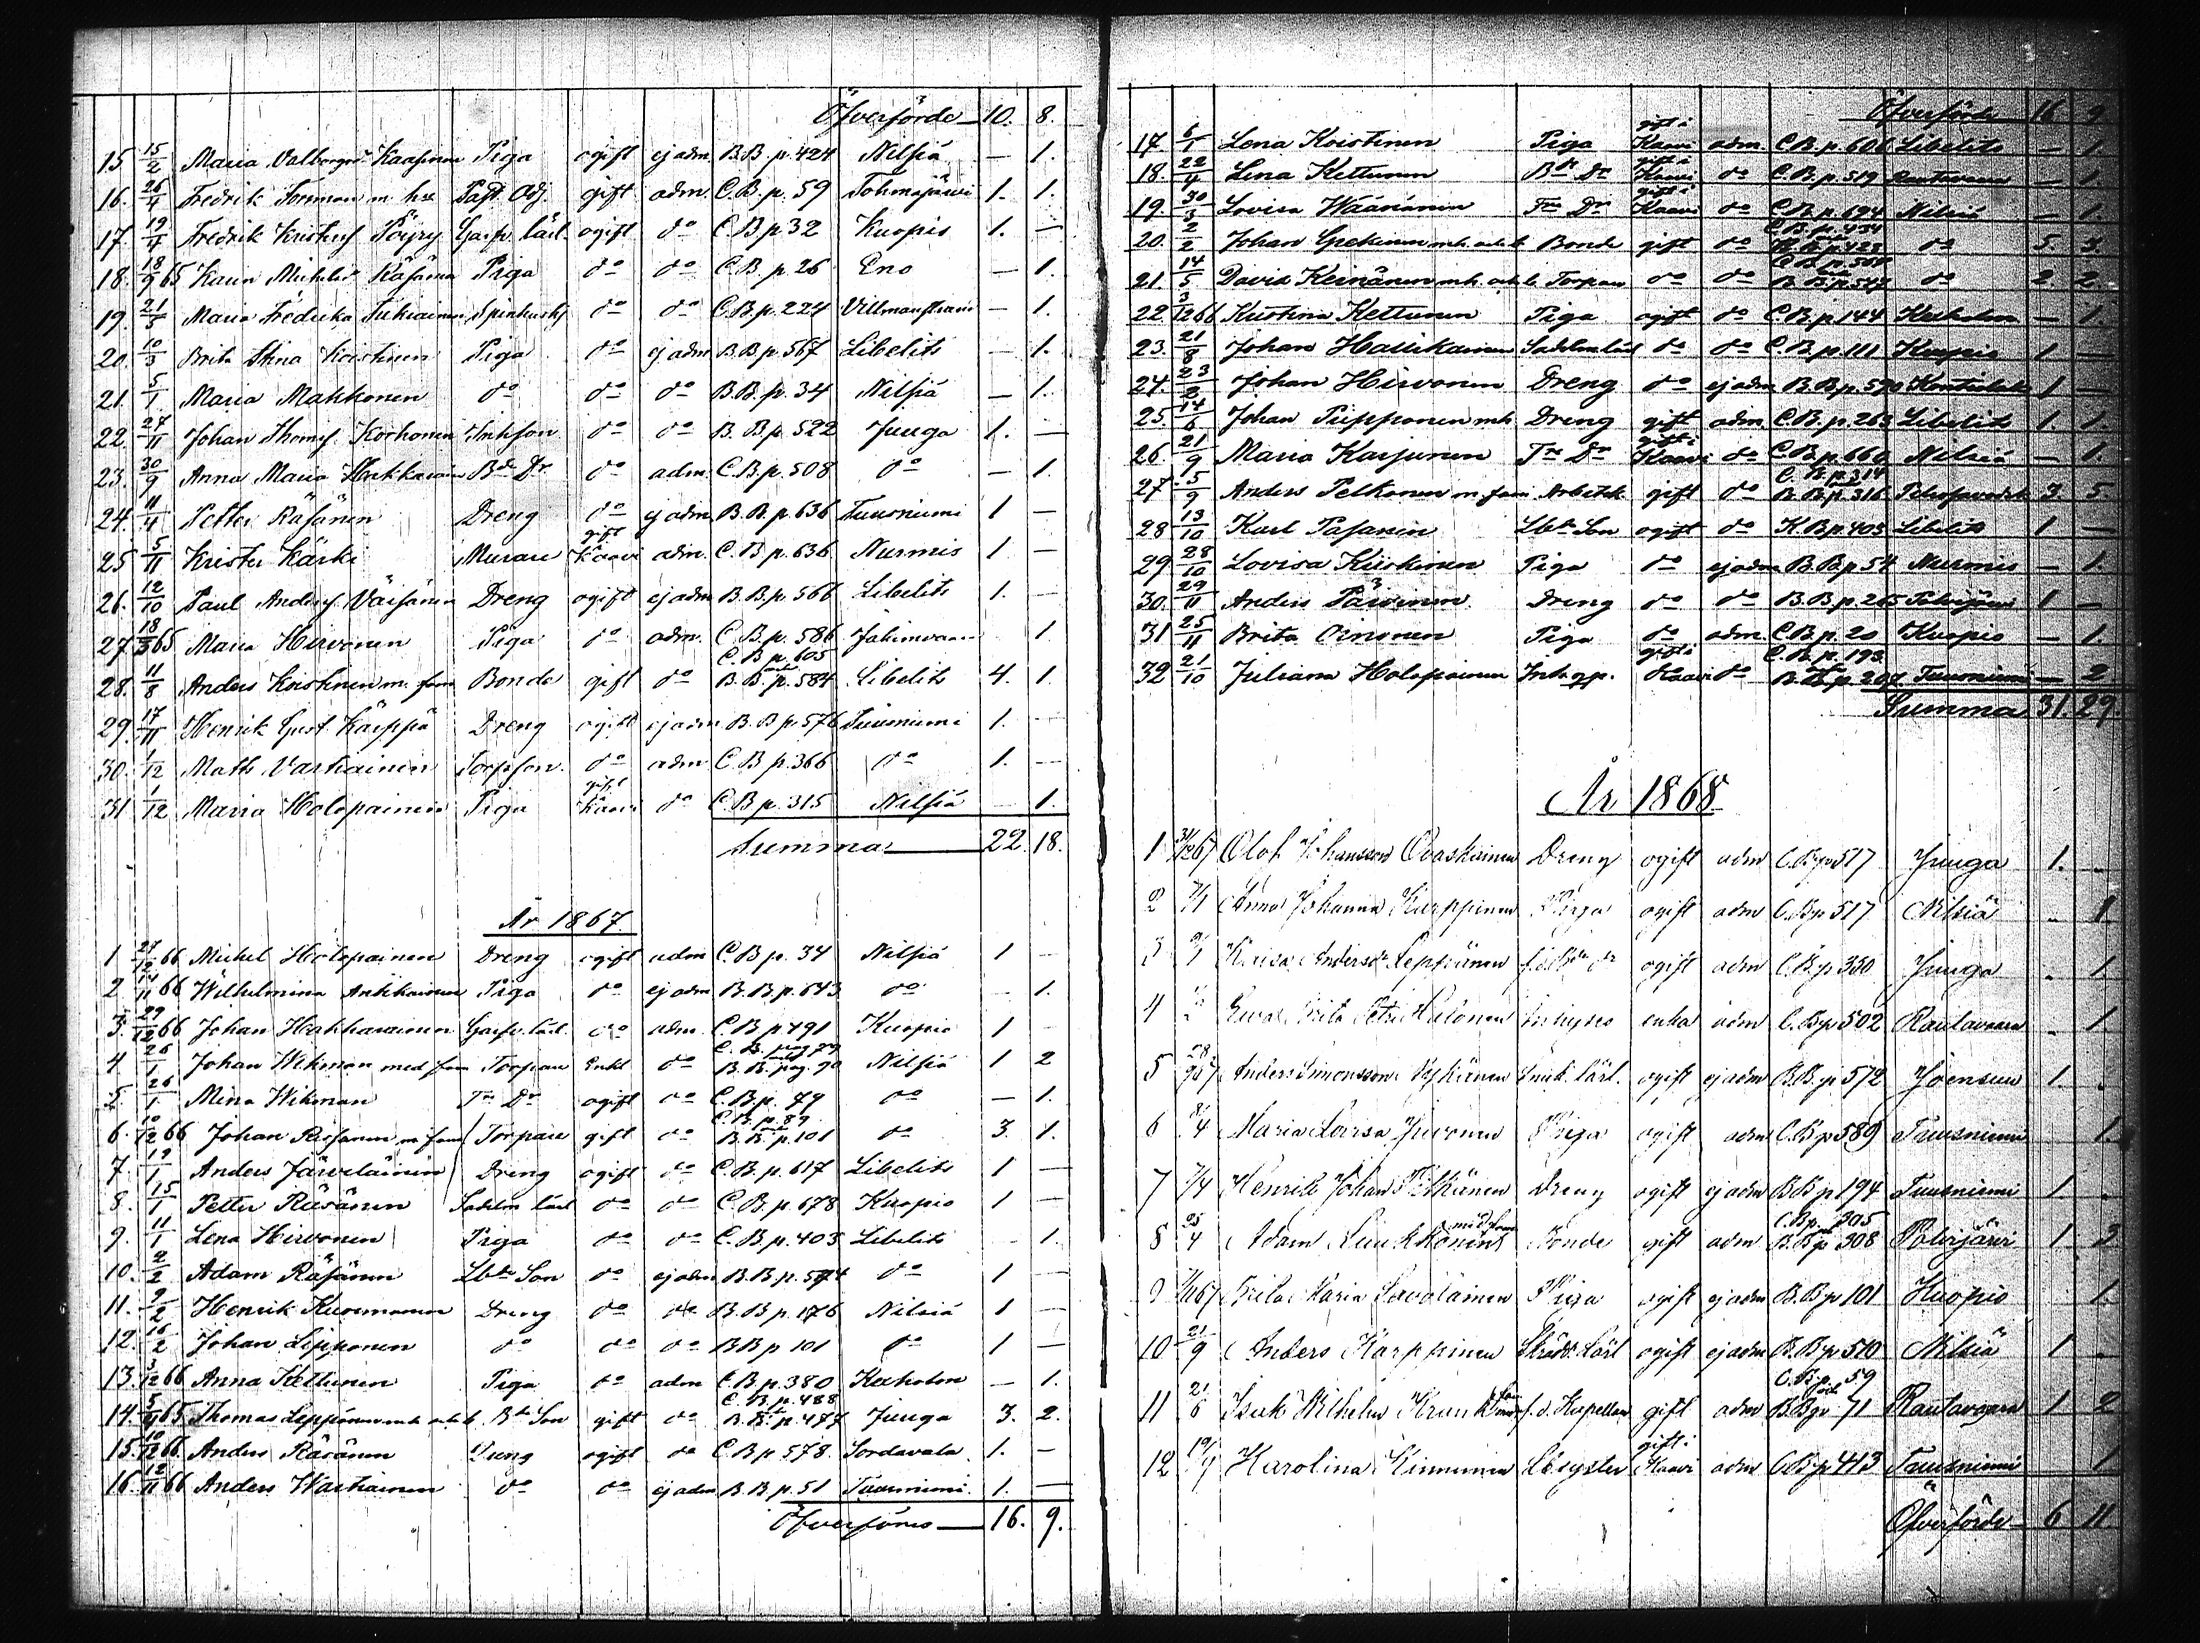 Öfverförde 10. 8.
15 15/2 Maria Valborg Kaasinen Piga ogift ej adm. B.B. p. 424 Nilsiä — 1.
16. 26/4 Fredrik Forsman m. hu Past. Adj. gift adm. C.B. p. 59 Tohmajärvi 1. 1.
17. 19/4 Fredrik Kristofs. Pöyry Garfv. lärl. ogift do C.B. p. 32 Kuopio 1. —
18. 18/9 65 Karin Räsänen Piga do do C.B. p. 26 Eno — 1.
19. 21/5 Maria Fredrika Tukiainen do do C.B. p. 224 Villmanstrand — 1.
20. 10/3 Brita Stina Koistinen Piga do ej adm B.B. p. 567 Libelits — 1.
21. 5/1 Maria Makkonen do do do B.B. p. 34 Nilsiä — 1.
22. 27/11 Johan Thomæs. Korhonen Inhson do do B.B. p. 522 Juuga 1. —
23. 30/9 Anna Maria Bde Dr do adm. C.B. p. 508 do — 1.
24. 11/4 Petter Räsänen Dreng do ej adm B.B. p. 636 Tuusniemi 1 —
25 5/11 Krister Kärki Murare gift Kaavi adm. C.B. p. 636 Nurmis 1 —
26. 12/10 Paul Andersf. Väisänen Dreng ogift ej adm B.B. p. 566 Libelits 1. —
27. 18/3 65 Maria Hirvonen Piga do adm. C.B. p. 586 1
28. 11/8 Anders Koistinen m. fam Bonde gift do C.B. p. 605 och B.B. p. 584 Libelits 4. 1
29. 17/11 Henrik Gust. Käppä Dreng ogift ej adm B.B. p. 576 Tuusniemi 1. —
30. 1/12 Math. Vartiainen Torpson. do adm C.B. p. 366 do 1. —
31 1/12 Maria Holopainen Piga gift Kaavi do C.B. p. 315 Nilsiä — 1.
Summa 22. 18.
År 1867.
1 27/12 66 Michel Holopainen Dreng ogift adm C.B. p. 34 Nilsiä 1 —
2 14/11 66 Wilhelmina Antikainen Piga do ej adm B.B. p. 643 do — 1.
3. 29/12 66 Johan Hakkarainen Garfv. lärl. do adm. C.B. p. 491 Kuopio 1 —
4. 26/1 Johan Wikman med fam Torpare Enkl. do C.B. pag 79 och B.B. pag. 90 Nilsiä 1 2
5. 26/1 Mina Wikman Tre Dr ogift do C.B. p. 79 do — 1.
6. 10/12 66 Johan m. fam Torpare gift do C.B. p. 89 och B.B. p. 101 do 3. 1.
7. 19/1 Anders Järveläinen Dreng ogift do C.B. p. 617 Libelits 1 —
8. 15/1 Petter Räsänen Sadelm. lärl do do C.B. p. 678 Kuopio 1 —
9. 11/1 Lena Hirvonen Piga do do C.B. p. 403 Libelits — 1
10. 2/2 Adam Räsänen Lbde Son do ej adm B.B. p. 574 do 1 —
11. 9/2 Henrik Kuosmanen Dreng do do B.B. p. 176 Nilsiä 1 —
12. 16/2 Johan Lipponen do do do B.B. p 101 do 1 —
13. 3/12 66 Anna Kettunen Piga do adm C.B. p. 380 Kexholm — 1.
14. 5/9 65 Thomas Leppänen mh. och b. Bde Son gift do C.B. p. 488 och B.B. p. 477 Juuga 3. 2.
15. 10/12 66 Anders Räsänen Dreng ogift do C.B. p. 578. Sordavala 1. —
16. 12/11 66 Anders Wartiainen do do ej adm B.B. p. 51 Tuusniemi. 1. —
Öfverföres 16. 9.
Öfverförde 16 9
17. 6/1 Lena Koistinen Piga gift i Kaavi adm C.B. p. 606 Libelits — 1.
18. 22/4 Lena Kettunen Bde Dr gift i Kaavi do C.B. p. 519 Rautavaara — 1
19. 30/3 Lovisa Wäänänen Tre Dr gift i Kaavi do C.B. p. 694 Nilsiä — 1.
20. 2/2 Johan mh. och b. Bonde gift do C.B. p. 434 B.B. p. 423 do 5 3.
21. 14/5 David Keinänen mh. och b. Torpare do do do 2 2
22. 3/12 66 Kristina Kettunen Piga ogift do C.B. p. 144 Kexholm — 1.
23. 21/8 Johan Hallikainen Sadelm. lärl do do C.B. p. 111 Kuopio 1 —
24. 23/2 Johan Hirvonen Dreng do ej adm B.B. p. 590 Kontiolaks 1 —
25. 14/6 Johan Piipponen mh Dreng gift adm C.B. p. 263 Libelits 1 1
26 21/9 Maria Karjunen Tre Dr gift i Kaavi do C.B. p. 660 Nilsiä — 1.
27. 5/9 Anders Pelkonen m. fam Arbetsk. gift do C.B. p. 314 B.B. p. 316 3 5
28 13/10 Karl Pasanen Lbde Son ogift do K.B. p. 403 Libelits 1 —
29 28/10 Lovisa Kiiskinen Piga do ej adm B.B. p. 54 Nurmis — 1.
30. 29/11 Anders Parvinen Dreng do do B.B. p. 265 Polvijärvi 1 —
31 25/11 Brita Oinonen Piga do adm. C.B. p. 20 Kuopio — 1.
32 21/10 Juliana Holopainen Inh. gp. gift i Kaavi do C.B. p. 193 B.B. p. 207 Tuusniemi — 2
Summa 31. 29.
År 1868
1 31/12 67 Olof Johansson Ovaskainen Dreng ogift adm C.B. p. 517 Juuga 1. —
2 7/1 Anna Johanna Kurppinen Piga ogift adm C.B. p 517 Nilsiä — 1
3 9/1 Kaisa Andersdr Leppänen ogift adm C.B. p 330 Juuga — 1
4 Eva Brita Petrs Halonen Inhyses enka adm C.B. p 502 Rautavaara — 1
5 Anders Simonsson Snick. lärl. ogift ej adm B.B. p 572 Joensuu 1.
6 8/4 Maria Lovisa Juvonen Piga ogift adm C.B. p 589 Tuusniemi 1.
7 7/4 Henrik Johan Pitkänen Dreng ogift ej adm B.B. p 194 Tuusniemi 1.
8 25/4 Adam Luukkonen med fam Bonde gift adm C.B. p. 305 och B.B. p 308 Polvijärvi 1 3
9 Brita Maria Savolainen Piga ogift ej adm B.B. p 101 Kuopio 1.
10 21/9 Anders Karppinen Skrädd. Lärl ogift ej adm B.B. p 510 Nilsiä 1
11 21/6 Isak Wilhelm Krank med fam f.d. Kapellan gift adm C.B. p. 59 och B.B. p 71 Rautavaara 1 2
12 Karolina Kinnunen Lbsyster gift i Kaavi adm C.B. p 413 Tuusniemi 1
Öfverförde 6 11